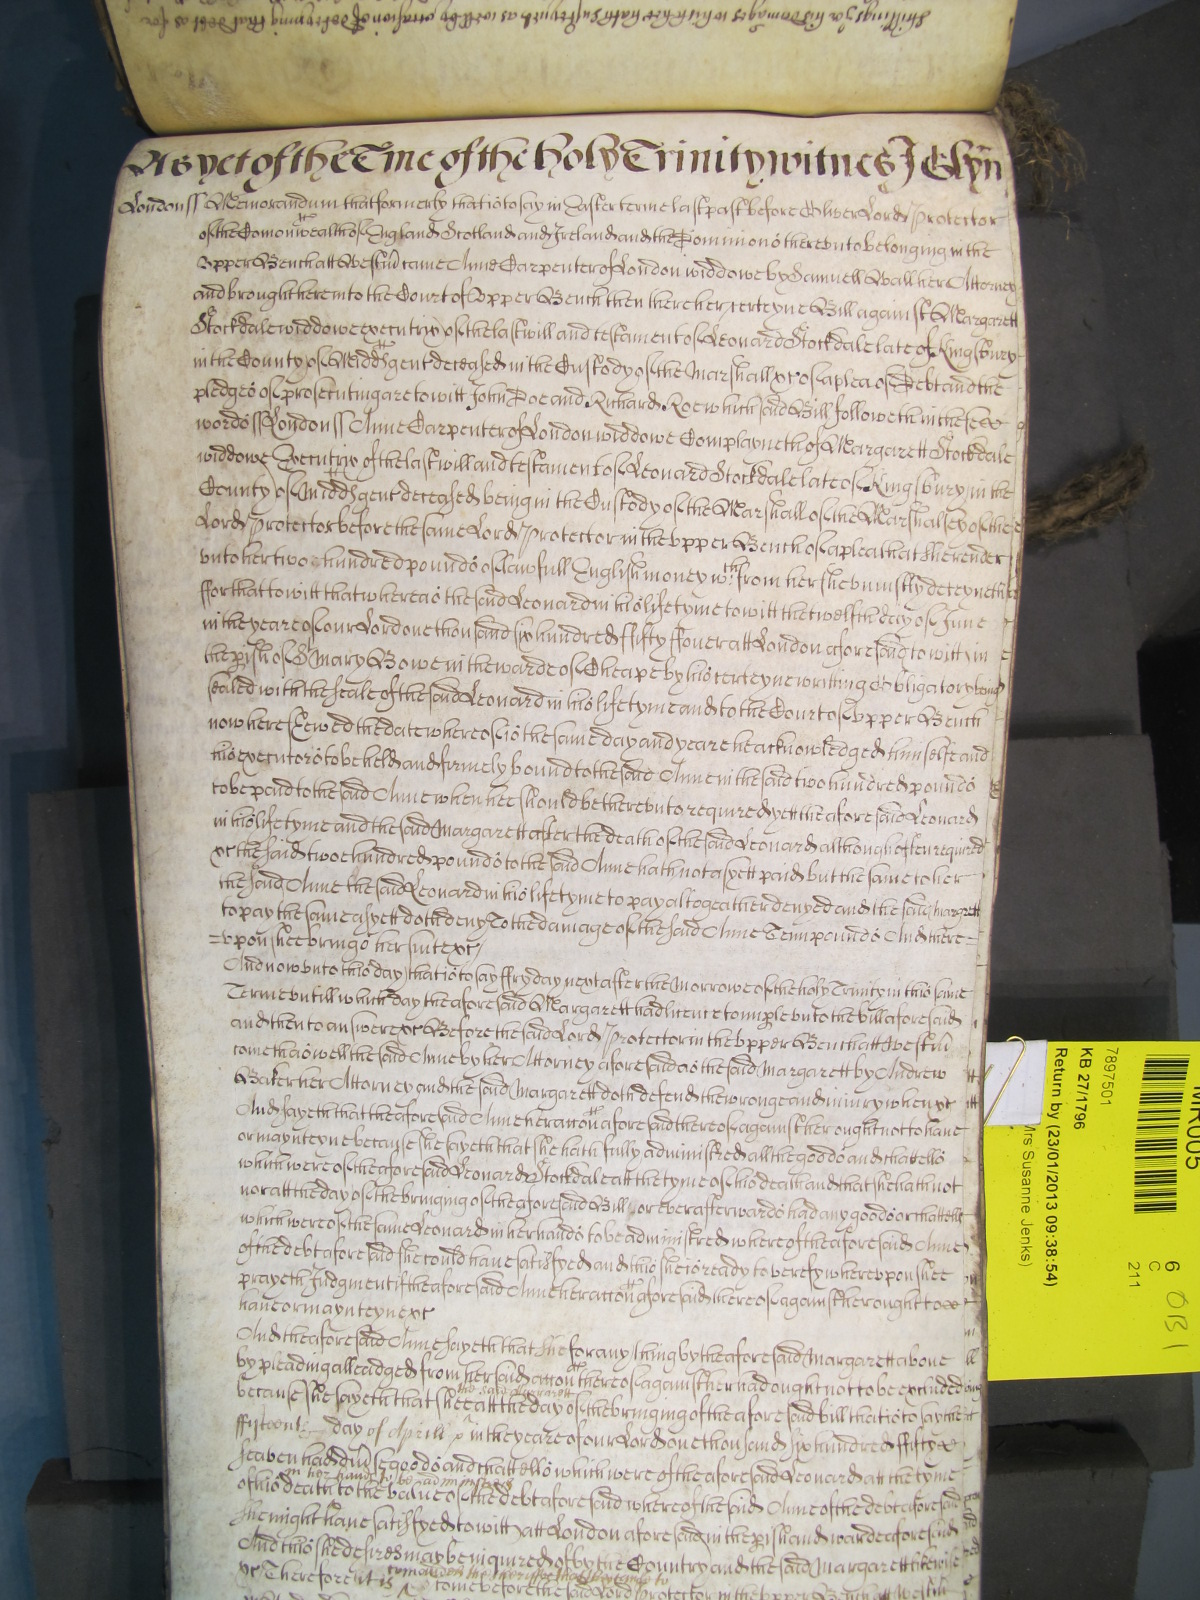 shillings for his Damages which hee hath susteyned as well by occasion of deteyning that Debt as for
As yet of the Tme of the Holy Trinity witnes J Glyn
London ss Memorandum that formerly that is to say in Easter terme last past before Oliver Lord Protector
of the Comonwealth of England Scotland and Ireland and the Dominions thereunto belonging in the
upper Bench att Westm came Anne Carpenter of London widdowe by Samuell Wall her Attorney
and brought here into the Court of Upper Bench then there her certeyne Bill against Margarett
Stockdale widdowe executrix of the last will and testament of Leonard Stockdale late of Kingsbury
in the County of Midd gent deceased in the Custody of the Marshall &c of a plea of Debt and the
pledges of prosecuting are to witt John Doe and Richard Roe which said Bill followeth in these
words ss London ss Anne Carpenter of London widdowe Complayneth of Margarett Stockdale
widdowe Executrix of the last will and testament of Leonard Stockdale late of Kingsbury in the
County of Midd gent deceased being in the Custody of the Marshall of the Marshalsey of the
Lord Protector before the same Lord Protector in the upper Bench of a plea that she render
unto her two hundred pounds of lawfull English money wch from her she uniustly deteyneth
ffor that to witt that whereas the said Leonard in his life tyme to witt the twelfth day of June
in the yeare of our Lord one thousand six hundred fifty ffouer att London aforesaid to witt in
the pish of St Mary Bowe in the warde of Cheape by his certeyne writting obligatory
sealed with the seale of the said Leonard in his life tyme and to the Court of upper Bench
now here shewed the date whereof is the same day and yeare he acknowledged himselfe and
his executors to be held and firmely bound to the said Anne in the said two hundred pounds
to be paid to the said Anne when hee should be thereunto required yett the aforesaid Leonard
in his life tyme and the said Margarett after the death of the said Leonard although often required
&c the said two hundred pounds to the said Anne hath not as yett paid but the same to her
the said Anne the said Leonard in his life tyme to pay altogeather denyed and the said Margarett
to pay the same as yett doth deny To the damage of the said Anne Tenn pounds And there=
=upon shee brings her suit &c
And now unto this day that is to say ffryday next after the Morrowe of the holy Trinity in this same
Terme untill which day the aforesaid Margarett had licence to imple unto the bill aforesaid
and then to answere &c Before the said Lord Protector in the upper Bench att Westm
come th aswell the said Anne by her Attorney aforesaid as the said Margarett by Andrew
Baker her Attorney and the said Margarett doth defend the wronge and iniury when &c
And sayeth that the aforesaid Anne her accon aforesaid thereof against her ought not to have
or maynteyne because she sayeth that she hath fully administred all the goods and chattells
which were of the aforesaid Leonard Stockdale att the tyme of his death and that she hath not
nor att the day of the bringing of the aforesaid Bill or ever afterwards had any goods or chattells
which were of the same Leonard in her hands to be administred whereof the aforesaid Anne
of the debt aforesaid she could have satisfyed and this she is ready to verefy whereupon shee
prayeth Judgment if the aforesaid Anne her accon aforesaid thereof against her ought to
have or maynteyne &c
And the aforesaid Anne sayeth that she for any thing by the aforesaid Margarett above
by pleading alleadged from her said accon thereof against her had ought not to be excluded
because she sayeth that shee the said Margarett att the day of the bringing of the aforesaid bill that is to say the
ffifteenth day of Aprill in the yeare of our Lord one thousand six hundred ffifty &
seaven had divs goods and chattells which were of the aforesaid Leonard att the tyme
of his death in her hands to be administred to the value of the debt aforesaid whereof the said Anne of the debt aforesaid
she might have satisfyed to witt att London aforesaid in the pish and warde aforesaid
And this she desires may be inquired of by the Country and the said Margarett likewise
&c Therefore it is comanded the sheriffe that hee cause to come before the said Lord Protector in the upper Bench att Westm
7897501
KB 27/1796
Return by (23/01/2013 09:38:54)
Mrs Susanne Jenks)
MR005
6
C
211
OB1